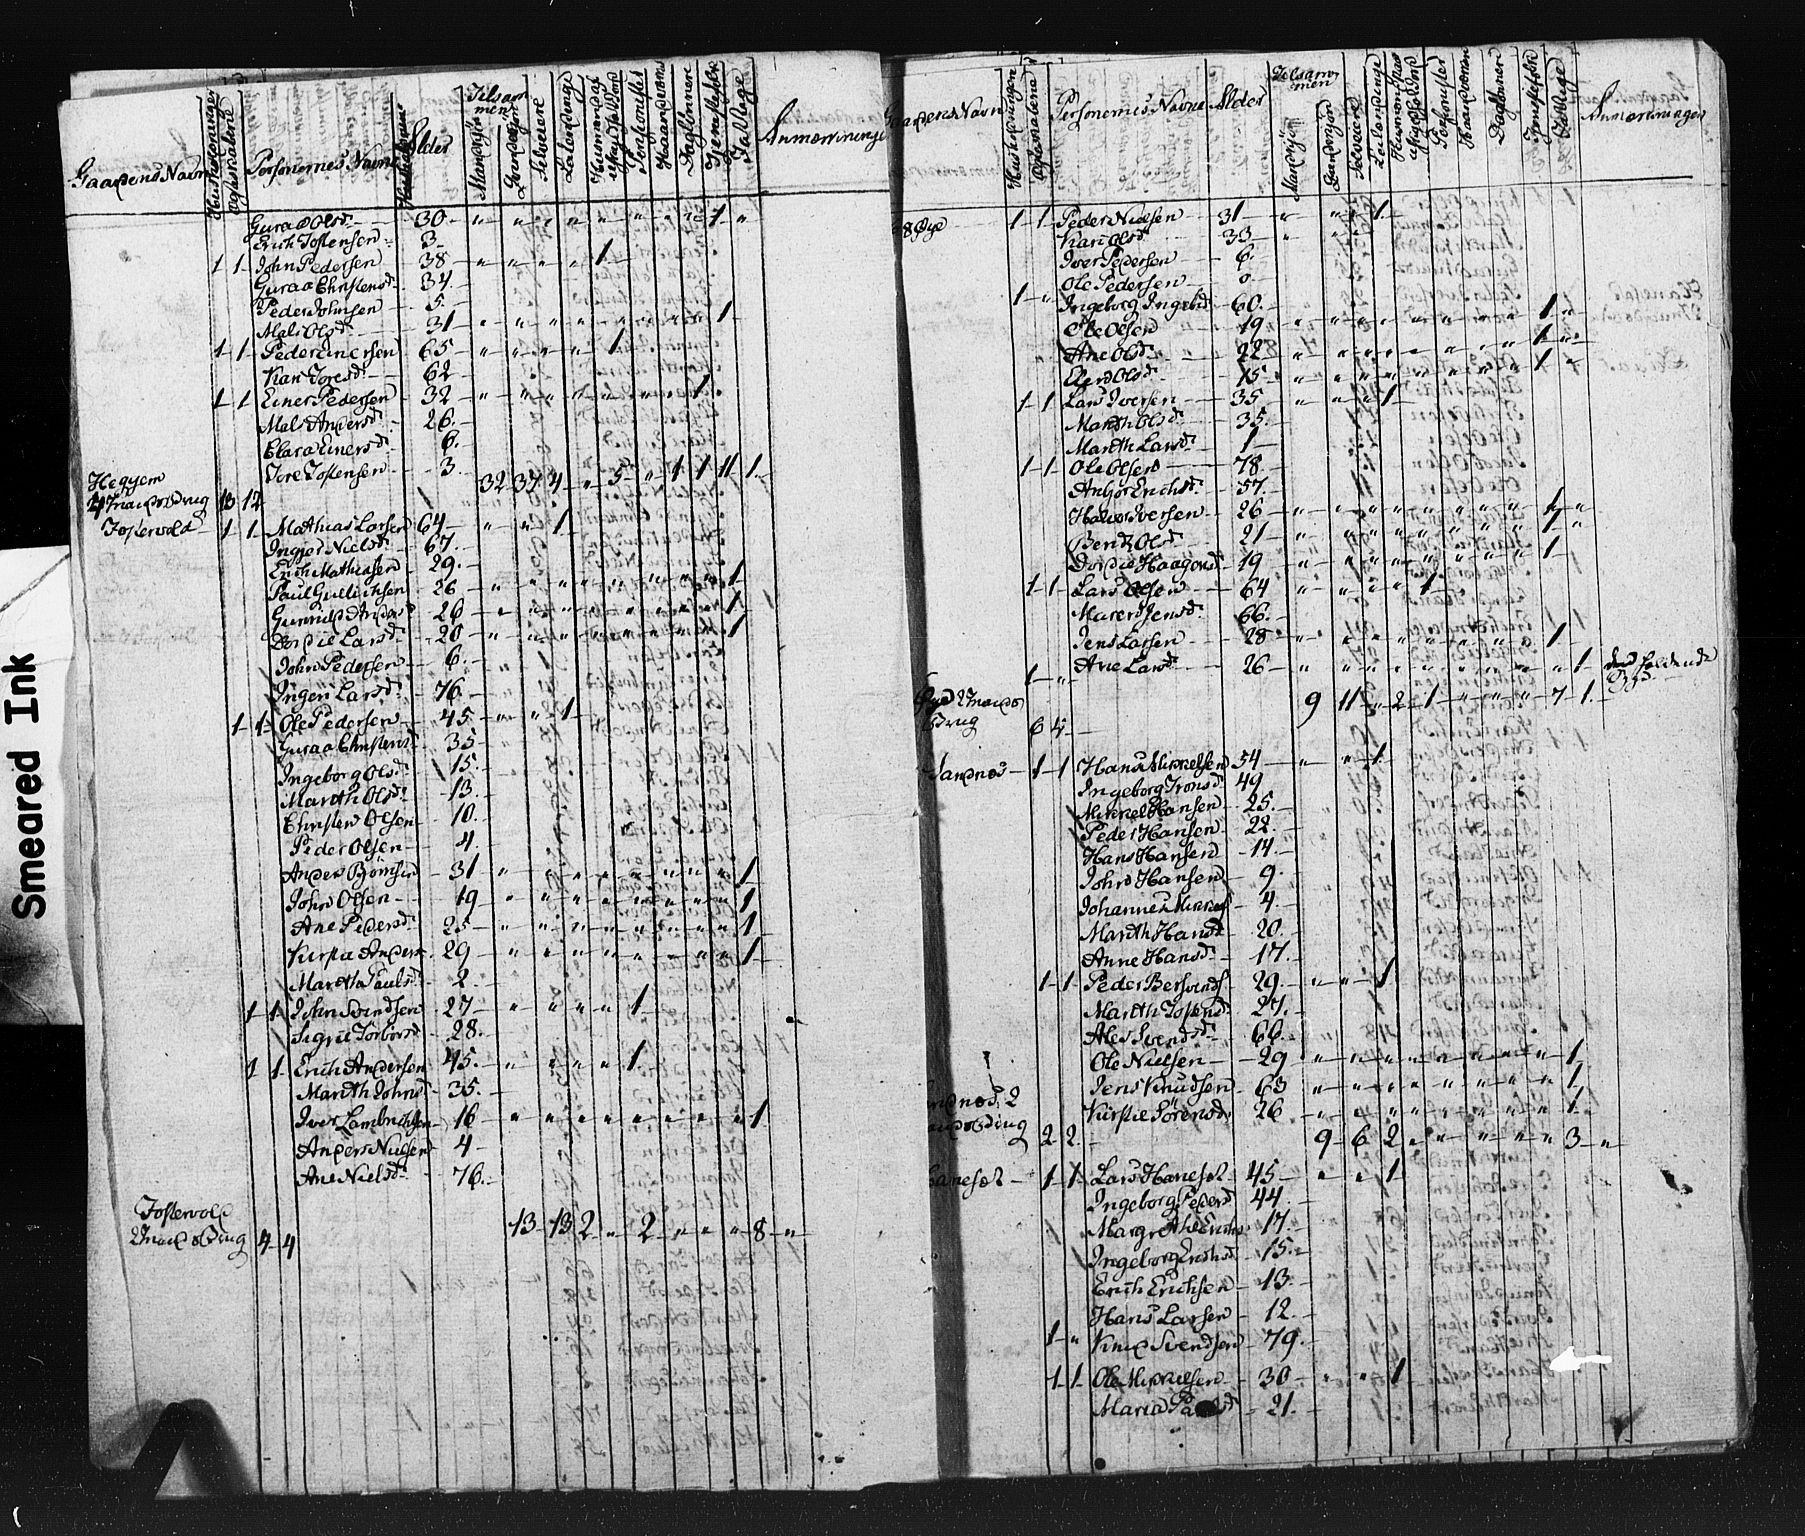 Smeared Ink
Gaardens Navn Huusholdninger Personernes Navne Alder Tilsammen Mandkjøn Qvindekjøn Selveiere Leilændinge Huusmænd Pensionister Haandværkere Daglønnere Tjenestefolk Fattige Anmærkninger
Guraa Olsd. 30 " " " " " " " " 1 "
Erich Tostensen 3
1 1 John Pedersen 38 " " " " 1
Guraa Christensd. 34
Peder Johnsen 5
Mali Olsd. 31 " " " " " " " " 1
1 1 Peder Einersen 65 " " " " 1
Kari Toresd. 62
1 1 Einer Pedersen 32 " " " " " " " 1
Mali Andersd. 26
Clara Einersd. 6
Tore Tostensen 3
Hegyem
4 Mands Brug 13 12 32 37 4 " 5 " 1 1 11 1
Tostervold 1 1 Mathias Larsen 64 " " 1
Ingjer Nielsd. 67
Erich Mathiasen 29
Paul Gullichsen 26 " " " " " " " " 1
Gunnild Andersd. 26 " " " " " " " " 1
Dordie Larsd. 20 " " " " " " " " 1
John Pedersen 6
Ingeri Larsd. 76
1 1 Ole Pedersen 45 " " 1
Guraa Christensd. 35
Ingeborg Olsd. 15
Marith Olsd. 13
Christen Olsen 10
Peder Olsen 4
Anders Biørnsen 31 " " " " " " " " 1
John Olsen 19 " " " " " " " " 1
Ane Pedersd. 25 " " " " " " " " 1
Kirstie Andersd. 29 " " " " " " " " 1
Maretha Paulsd. 2
1 1 John Svendsen 27 " " " " 1
Sigrie Torbersd. 28
1 1 Erich Andersen 45 " " " " 1
Marith Johnsd. 35
Iver Lambrichsen 16 " " " " " " " " 1
Anders Nielsen 4
Ane Nielsd. 76
Tostervold
2 Mands Brug 4 4 13 13 2 " 2 " " " 8 "
Gaardens Navn Huusholdninger Personernes Navne Alder Tilsammen Mandkjøn Qvindekjøn Selveiere Leilændinge Huusmænd Pensionister Haandværkere Daglønnere Tjenestefolk Fattige Anmærkninger
Øye 1 1 Peder Nielsen 31 " " " 1
Kari Olsd. 33
Iver Pedersen 6
Ole Pedersen 0
1 " Ingeborg Ingebrd. 60
Ole Olsen 19 " " " " " " " " 1 "
Ane Olsd. 22 " " " " " " " " 1 "
Eli Olsd. 15 " " " " " " " " 1 "
1 1 Lars Iversen 35 " " " 1
Marith Olsd. 35
Marith Larsd. 1
1 1 Ole Olsen 78
Anbjør Erichsd. 57
Halvor Iversen 26 " " " " " " " " 1 "
Berit Olsd. 21 " " " " " " " " 1 "
Dordie Haagensd. 19 " " " " " " " " 1
1 1 Lars Olsen 64 " " " " 1
Maren Jensd. 66
Jens Larsen 28 " " " " " " " " 1
1 " Ane Larsd. 26 " " " " " " " " " 1
Øye 2 Mands
Brug 6 4 9 11 " 2 1 " " " 7 1
Sandnes 1 1 Hans Mikkelsen 54 " " 1
Ingeborg Tronsd. 49
Mikkel Hansen 25
Peder Hansen 22
Hans Hansen 14
John Hansen 9
Johannes Mikkels. 4
Marith Hansd. 20
Anne Hansd. 17
1 1 Peder Bersvends. 29 " " 1
Marith Tostensd. 27
Ales Svendsd. 66
Ole Nielsen 29 " " " " " " " " 1
Jens Knudsen 63 " " " " " " " " 1
Kirstie Sørensd. 26 " " " " " " " " 1
Sandnes 2
Mands Brug 2 2 9 6 2 " " " " " 3 "
1 1 Lars Hanesæt 45 " " 1
Ingeborg Pedersd. 44
Margrethe Erichsd. 17
Ingeborg Erichsd. 15
Erich Erichsen 13
Hans Larsen 12
1 " Knud Svendsen 79
1 1 Ole Mikkelsen 30 " " 1
Maria 21